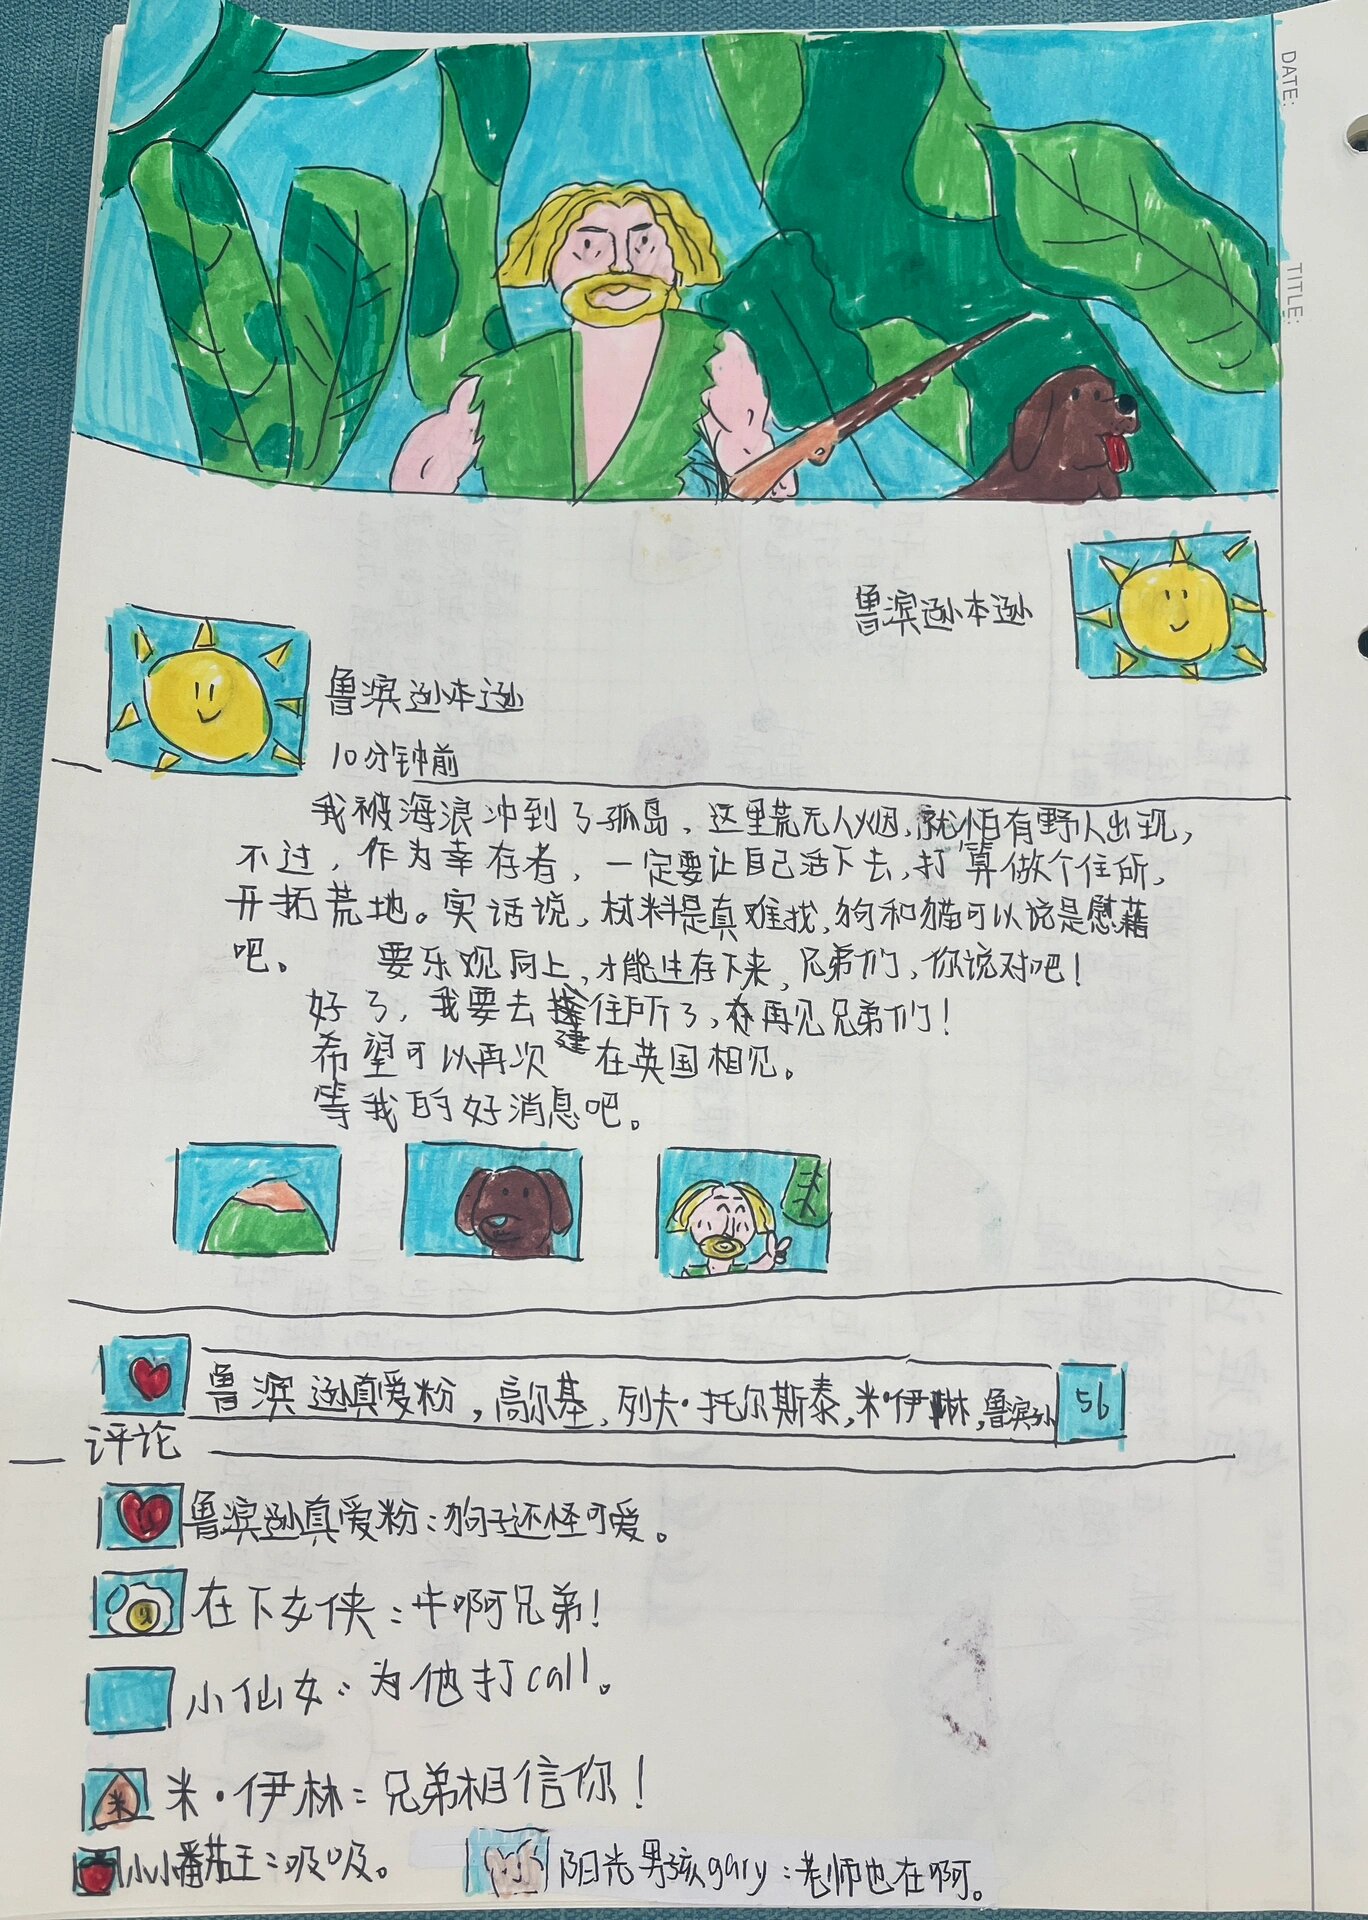 DATE:
TITLE:
鲁滨逊本逊
鲁滨逊本逊
10分钟前
我被海浪冲到了孤岛，这里荒无人烟，就怕有野人出现，
不过，作为幸存者，一定要让自己活下去，打算做个住所，
开拓荒地。实话说，材料是真难找，狗和猫可以说是慰藉
吧。 要乐观向上，才能生存下来，兄弟们，你说对吧！
好了，我要去建住所了，再见兄弟们！
希望可以再次在英国相见。
等我的好消息吧。
鲁滨逊真爱粉，高尔基，列夫·托尔斯泰，米·伊林，鲁滨逊 56
评论
鲁滨逊真爱粉：狗子还怪可爱。
在下女侠：牛啊兄弟！
小仙女：为他打call。
米
米·伊林：兄弟相信你！
小小番茄王：吸吸。
阳光男孩gary：老师也在啊。